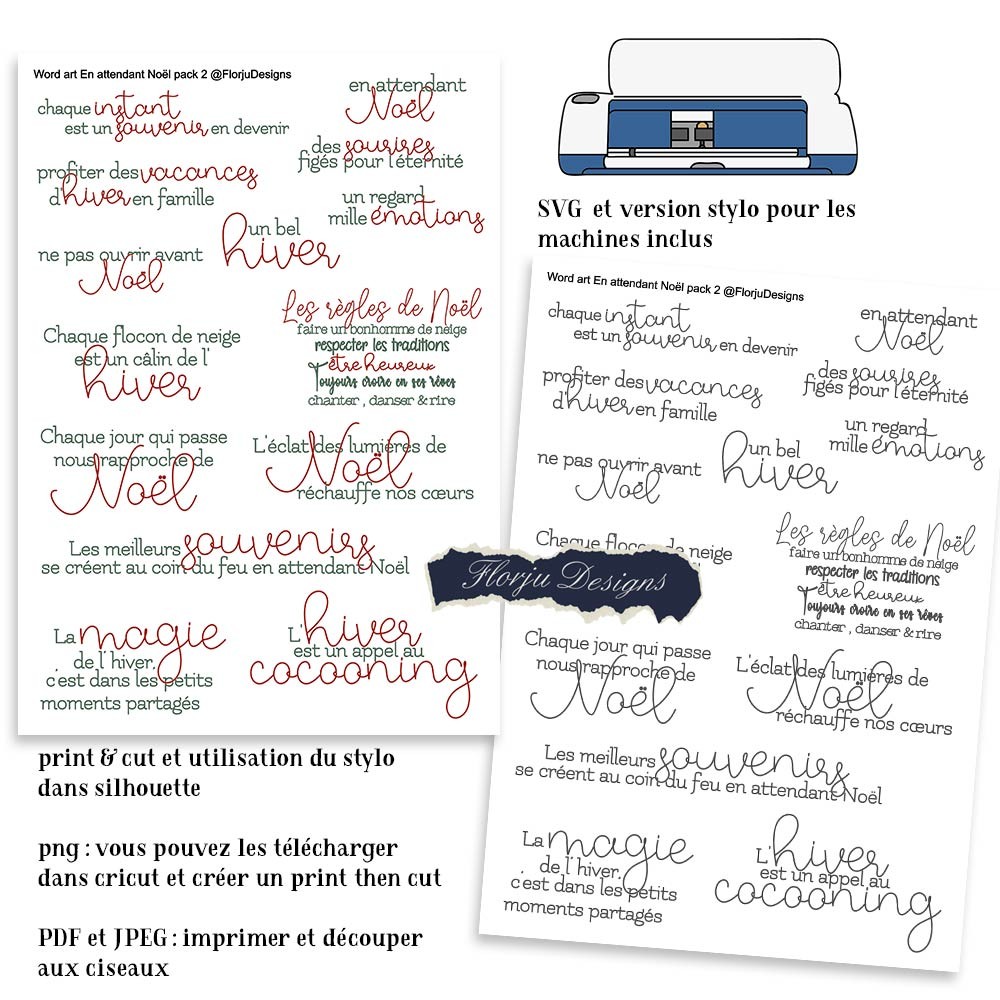 Word art En attendant Noël pack 2 @FlorjuDesigns
chaque instant
est un souvenir en devenir
en attendant
Noël
des sourires
figés pour l'éternité
profiter des vacances
d'hiver en famille
un regard
mille émotions
un bel
hiver
ne pas ouvrir avant
Noël
Les règles de Noël
faire un bonhomme de neige
respecter les traditions
être heureux
Toujours croire en ses rêves
chanter , danser & rire
Chaque flocon de neige
est un câlin de l'
hiver
Chaque jour qui passe
nous rapproche de
Noël
L'éclat des lumières de
Noël
réchauffe nos cœurs
Les meilleurs souvenirs
se créent au coin du feu en attendant Noël
La magie
de l'hiver.
c'est dans les petits
moments partagés
L'hiver
est un appel au
cocooning
SVG et version stylo pour les
machines inclus
Word art En attendant Noël pack 2 @FlorjuDesigns
chaque instant
est un souvenir en devenir
en attendant
Noël
des sourires
figés pour l'éternité
profiter des vacances
d'hiver en famille
un regard
mille émotions
un bel
hiver
ne pas ouvrir avant
Noël
Les règles de Noël
faire un bonhomme de neige
respecter les traditions
être heureux
Toujours croire en ses rêves
chanter , danser & rire
Chaque flocon de neige
Florju Designs
Chaque jour qui passe
nous rapproche de
Noël
L'éclat des lumières de
Noël
réchauffe nos cœurs
Les meilleurs souvenirs
se créent au coin du feu en attendant Noël
La magie
de l'hiver.
c'est dans les petits
moments partagés
L'hiver
est un appel au
cocooning
print & cut et utilisation du stylo
dans silhouette
png : vous pouvez les télécharger
dans cricut et créer un print then cut
PDF et JPEG : imprimer et découper
aux ciseaux